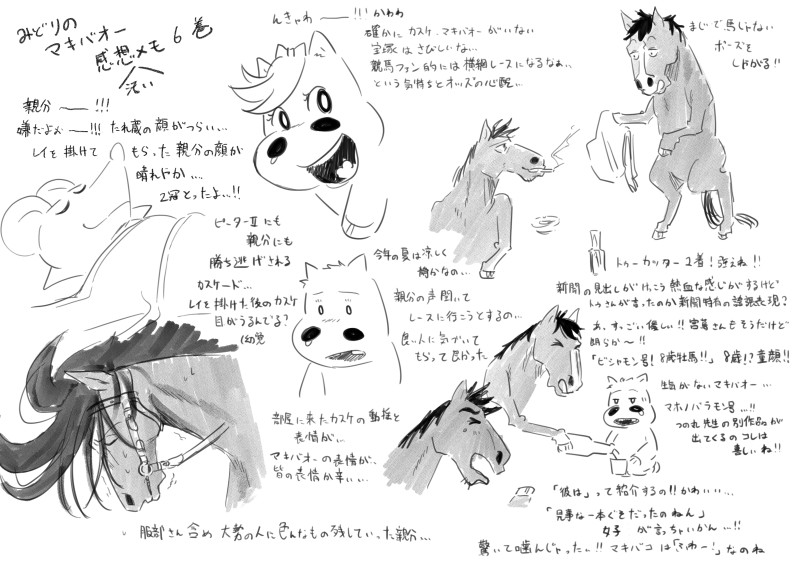 みどりの
マキバオー
感想メモ 6巻
親分 ――!!!
嫌だよぉ ――!!! たれ蔵の顔がつらい…
レイを掛けて もらった親分の顔が
晴れやか…
2冠とったよ…!!
んきゃわ ――!!! かわわ
確かに カスケ、マキバオーがいない
宝塚はさびしいな…
競馬ファン的には横綱レースになるなぁ…
という気持ちとオッズの心配…
まじで馬じゃない
ポーズを
しとがる!!
ピーターⅡにも
親分にも
勝ち逃げされる
カスケード…
レイを掛けた後のカスケ
目がうるんでる?
今年の夏は涼しく
親分の声聞いて
レースに行こうとするの…
良い人に気づいて
もらって良かった
トゥーカッター2着! 強ぇね!!
新聞の見出しがけっこう熱血な感じがするけど
トゥさんが言ったのか新聞特有の誇張表現?
あ、すっごい優しい!! 宮蕗さんもそうだけど
朗らか〜!!
「ビシャモン号! 8歳牡馬!!」 8歳!? 童顔!!
生気がないマキバオー…
マホノバラモン号…!!
つの丸先生の別作品が
出てくるのコレは
嬉しいね!!
部屋に来たカスケの動揺と
表情が…
マキバオーの表情が、
皆の表情が辛い…
「彼は」って紹介するの!! かわいい…
「見事な一本ぐそだったのねん」
女子 が言っちゃいかん…!!
驚いて噛んじゃった…!! マキバコは「さわー!」なのね
服部さん含め 大勢の人に色んなもの残していった親分…